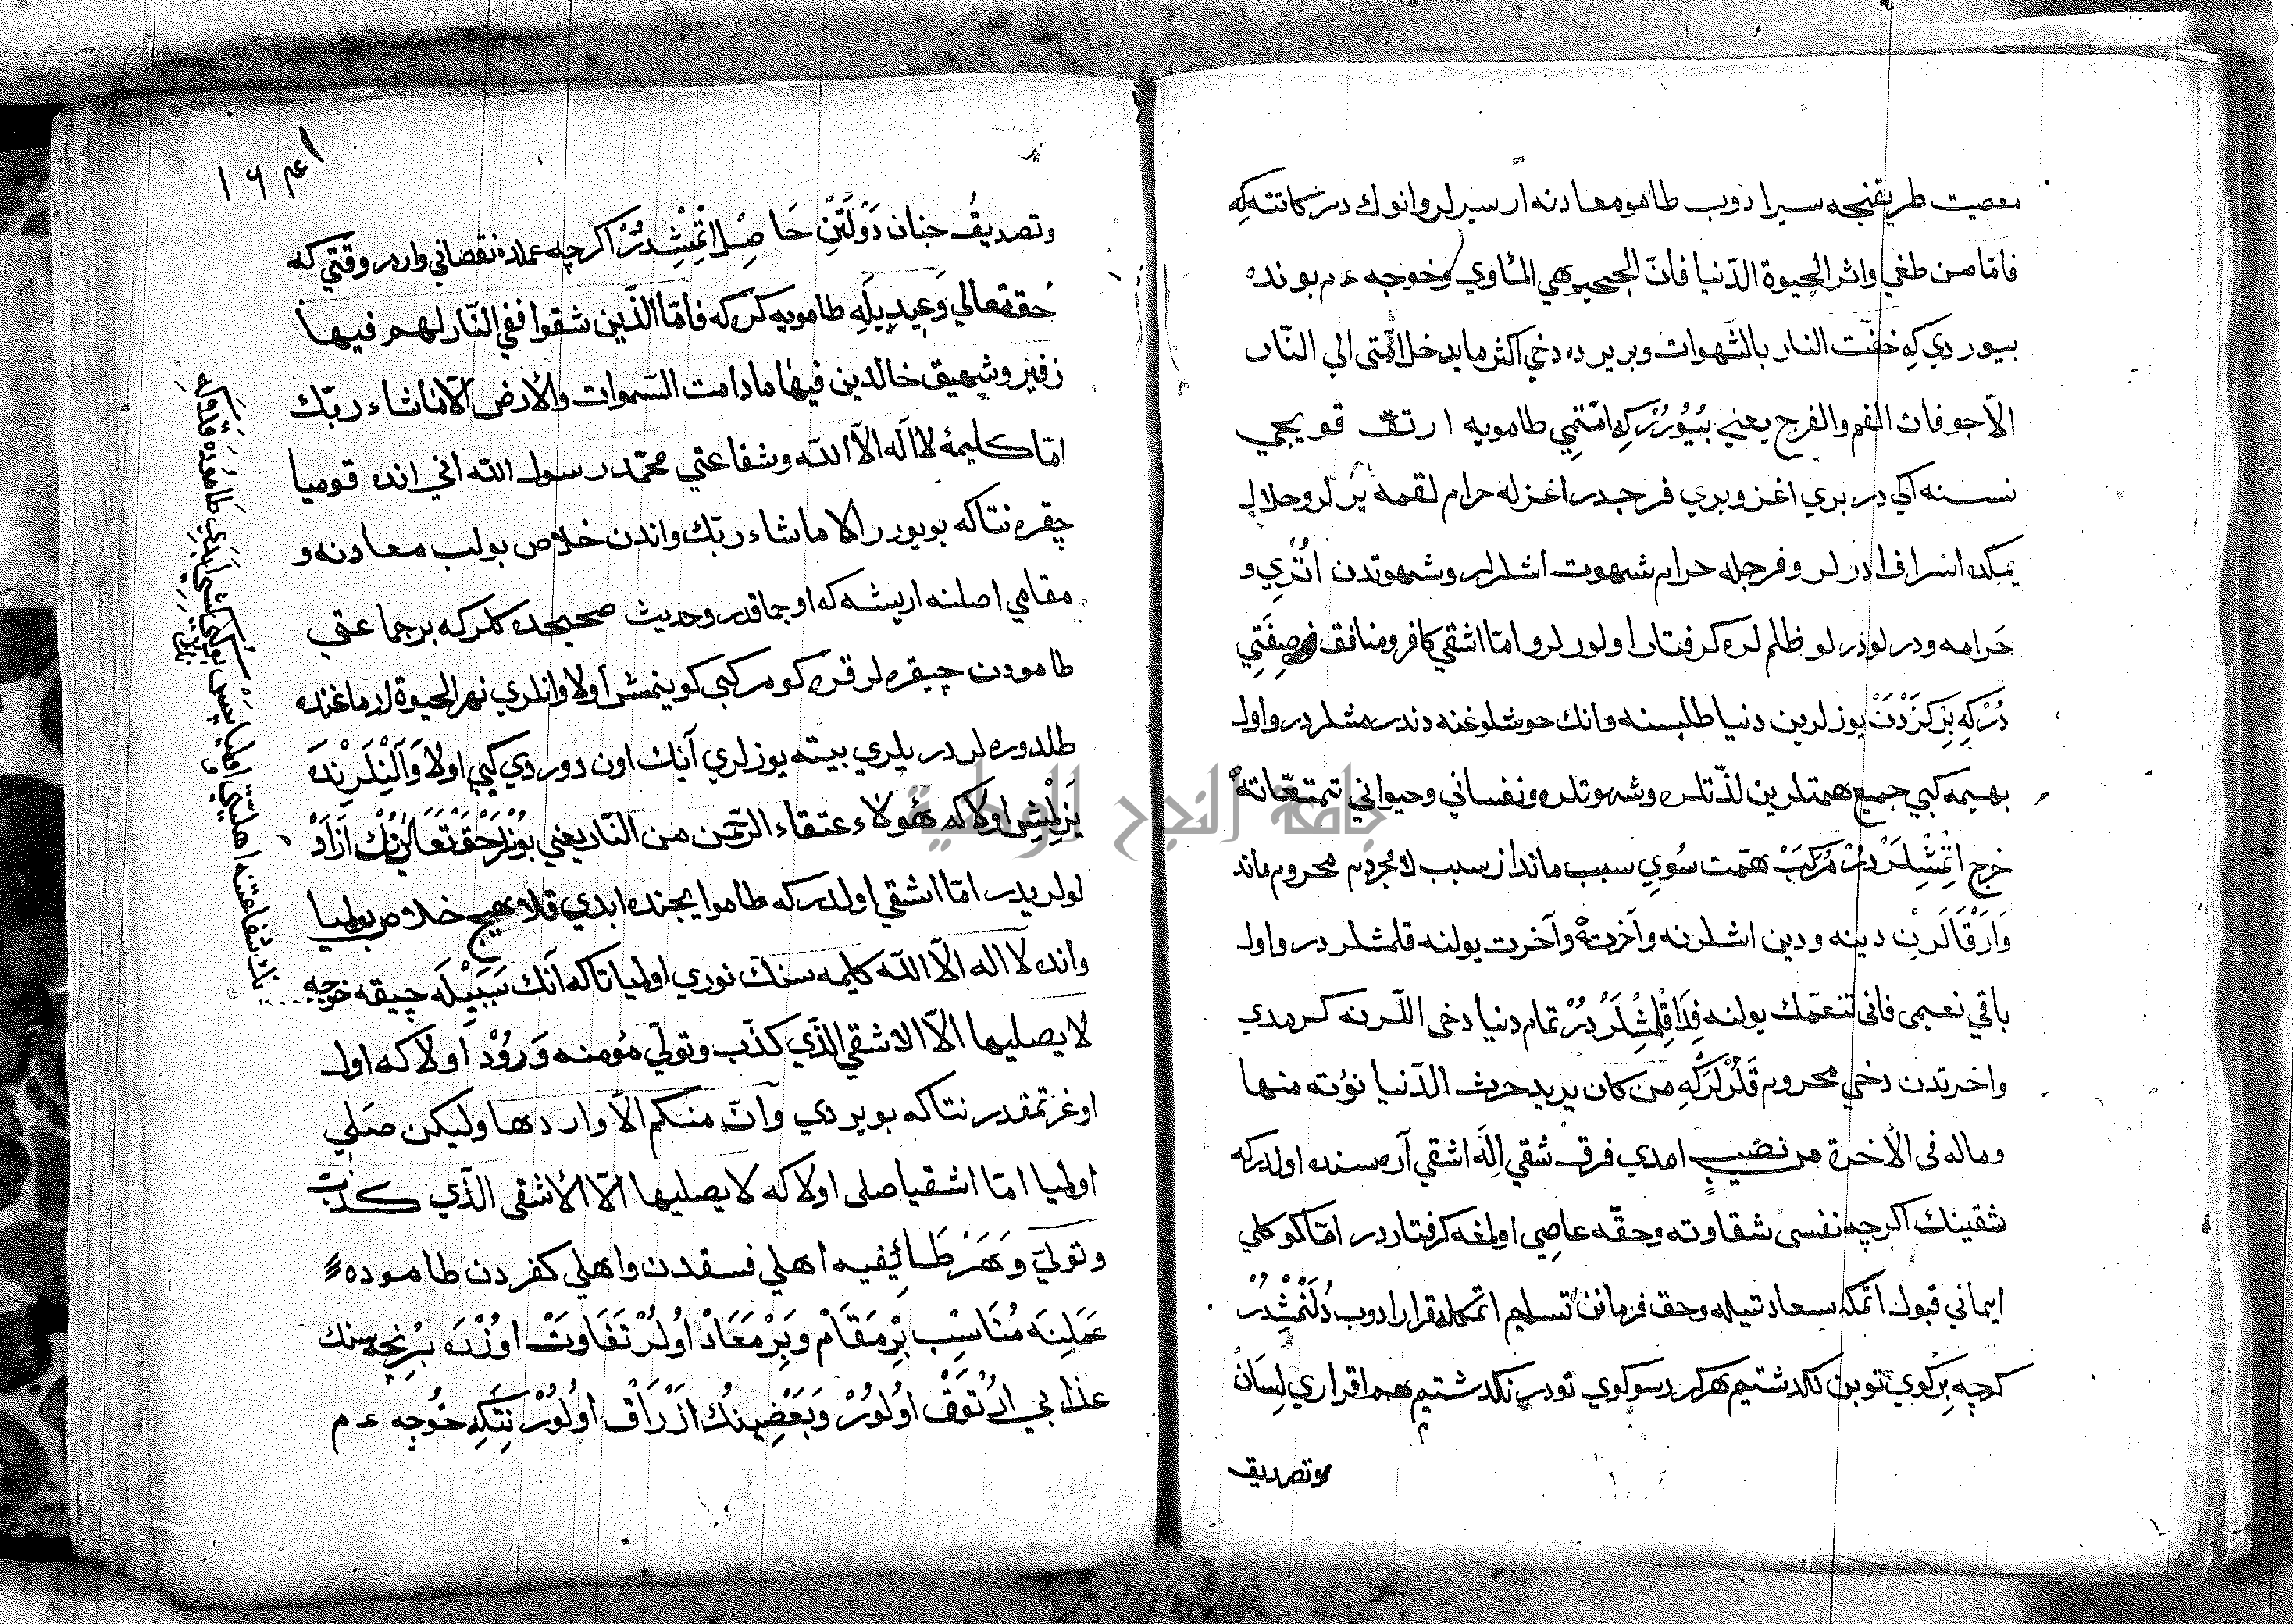 معصیت طریقنجه سیرا دوب طامو معادنه ارسیرلر وانوك درکاتنه که
فامّا من طغي واثر الحیوة الدّنیا فانّ الجحیم هي المأوي وخوجه ءم بونده
بیوردي که خفّت النار بالشّهوات وبریرده دخي اکثر ما یدخل امّتی الي النّار
الّا جوفان الفم والفرج یعني بیُوررکه امّتمي طامویه ارتق قویجي
نسنه اکي در بري اغز وبري فرجدر اغزله حرام لقمه یرلر وحلال
یمکده اسراف ادرلر وفرجله حرام شهوت اشلرلر وشهوتدن اتري و
حَرامه ودرلو درلو ظلملره کرفتار اولورلر وامّا اشقي کافر ومنافق صِفَتي
دُرکه بَرکزدَن یوزلرین دنیا طلبسنه وانك خوشلوغنه دندرمشلردر واول
بهیمه کبي جمیع همتلرین لذّتلره وشهوتلره ونفساني وحیواني تمتعّاته
خرج اتمشلردر مَرکبْ همّت سُوي سبب ماند از سبب لا جرم محروم ماند
وَارَقَالَرِن دینه ودین اشلرنه وآخرته وآخرت یولنه قلمشلردر واول
باقي نعیمی فانی تنعّمك یولنه فدا قلمشلردُر تمام دنیا دخی اللرنه کرمدي
واخرتدن دخي محروم قَلُرلرکه من کان یرید حرث الدّنیا نؤته منها
وماله فی الأخرة من نصیبٍ امدي فرق شقي الّه اشقي آره سنده اولدرکه
شقینك اکرچه نفسی شقاوته وحقّه عاصي اولمغه کرفتاردر امّا کوکلي
ایماني قبول اتمکه سعادتیله وحق فرماننَ تسلیم اتمکله قرار ادوب دُلَنْمشدُر
کرچه برکوي توبن نکدشتیم هرکز درسوکوي تودر نکدشتیم هم اقراري لِسَان
وتصدیق
۱۶۱
وتصدیقُ جنان دَوْلَتِنْ حَاصِل اتْمِشْدِرُرْ اکرچه عملده نقصاني واردر وقتي که
حُقتعالي وَعیدیله طامویه کرر که فامّا الذّین شقوا ففي النّار لهم فیها
زفیر وشهیق خالدین فیها مادامت السّموات والأرض الّا ما شاء ربّك
امّا کلیمۀ لا اله الّا الله وشفاعتي محمّد رسول الله اني انده قومیا
چقره نتاکه بویورر الا ما شاء ربّك واندن خلاص بولب معادنه و
مقامي اصلنه اریشه که اوجماقدر وحدیث صحیحده کلرکه برجماعتي
طامودن چیقره لر قره کومرکبي کوینمش اولا وانلري نهر الحیوة ارماغنده
طلدوره لر دریلري بیته یوزلري آنیك اون دوردي کبي اولا وَاَلَنْلَرِنده
یَزلمش اولا که هؤلاء عتقاء الرّحمن من النّار یعني بونلر حق تعالینُك ازاد
لولریدر امّا اشقي اولدر که طامو ایچنده ابدي قلا هیچ خلاص بولمیا
وانده لا اله الّا الله کلیمه سنك نوري اولمیا تاکه آنك سَبَبیلَه چیقه خوجه
لا یصلیها الّا الاشقي الذّي کذّب وتولّي مؤمنه وَرُوْد اولا که اول
اوغرتمقدر نتاکه بویردي وانّ منکم الّا واردها ولیکن صَلي
اولمیا امّا اشقیا صلی اولا که لا یصلیها الّا الأشقی الذّي کذّب
وتوليّ وَهَر طَائِفیه اهلي فسقدن واهلي کفردن طاموده
عَمَلِنَه مُنَاسِب بِرْمَقَامْ وَبِرْمَعَادْ اُولُرْ تَفَاوَتْ اوُزْرَه بِرْنجه سنك
عذابي ارْتُوَقْ اوُلُورْ وَبَعْضِینُك ازْرَاقْ اوُلُورْ نِتَکِه خُوجه ءم